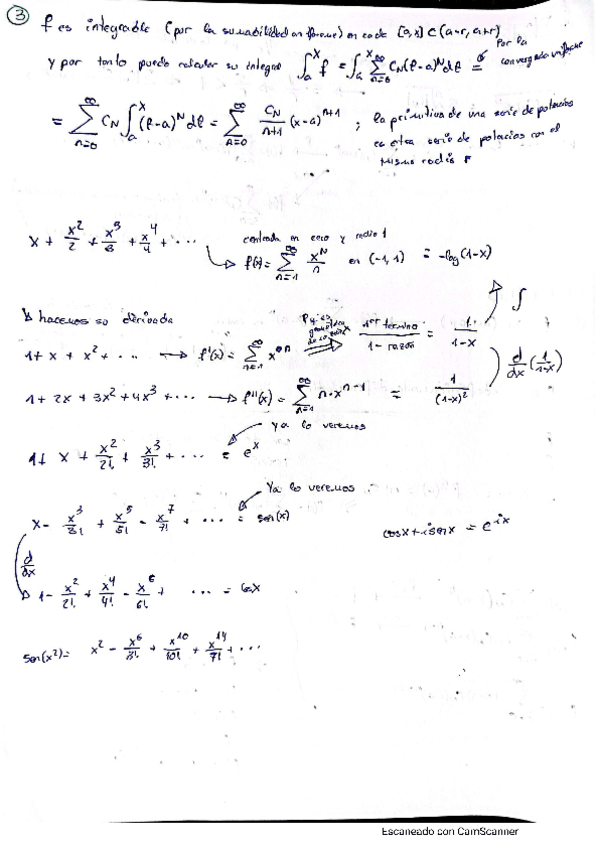 ③ f es integrable (por la sumabilidad uniforme) en cada [a,x] ⊂ (a-r, a+r)
y por tanto puedo calcular su integral ∫ₐˣ f = ∫ₐˣ ∑_{n=0}^∞ Cₙ(t-a)ⁿ dt = Por la convergencia uniforme
= ∑_{n=0}^∞ Cₙ ∫ₐˣ (t-a)ⁿ dt = ∑_{n=0}^∞ Cₙ/(n+1) (x-a)ⁿ⁺¹ ; la primitiva de una serie de potencias
es otra serie de potencias con el
mismo radio r
x + x²/2 + x³/3 + x⁴/4 + ... centrada en cero y radio 1
f(x) = ∑_{n=1}^∞ xⁿ/n en (-1, 1) = -log(1-x)
hacemos su derivada
1 + x + x² + ... → f'(x) = ∑_{n=1}^∞ ⇒ 1er término / 1 - razón = 1/(1-x) ∫
1 + 2x + 3x² + 4x³ + ... → f''(x) = ∑_{n=1}^∞ n·xⁿ⁻¹ = 1/(1-x)² d/dx (1/(1-x))
1 + x + x²/2! + x³/3! + ... = eˣ ya lo veremos
x - x³/3! + x⁵/5! - x⁷/7! + ... = sen(x) Ya lo veremos
cosx + i senx = e^{ix}
d/dx
1 - x²/2! + x⁴/4! - x⁶/6! + ... = cosx
sen(x²) = x² - x⁶/3! + x¹⁰/10! + x¹⁴/7! + ...
Escaneado con CamScanner